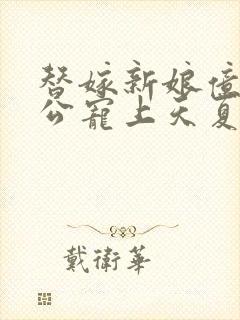 替嫁新娘億
公寵上天夏
戴衛華